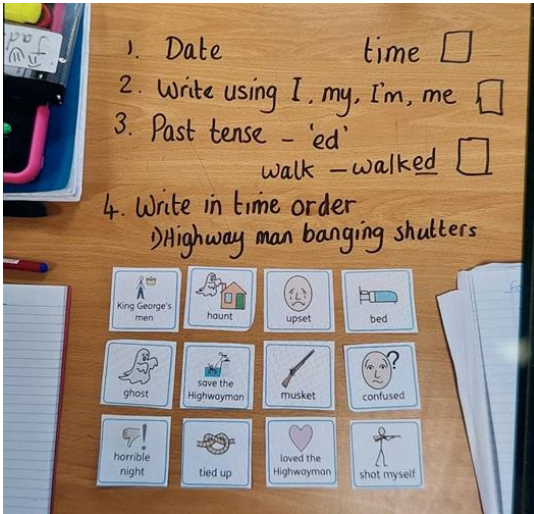 1. Date time
2. Write using I, my, I'm, me
3. Past tense - 'ed'
walk - walked
4. Write in time order
1) Highway man banging shutters
King George's
men
haunt
upset
bed
ghost
save the
Highwayman
musket
confused
horrible
night
tied up
loved the
Highwayman
shot myself